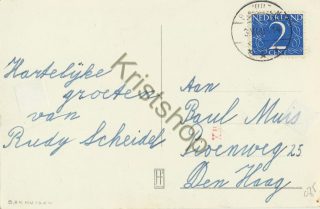 NEDERLAND
2
CENT
Hartelijke
groeten
van
Rudy Scheidel
Aan
Paul Muis
25
Den Haag
Kristshop